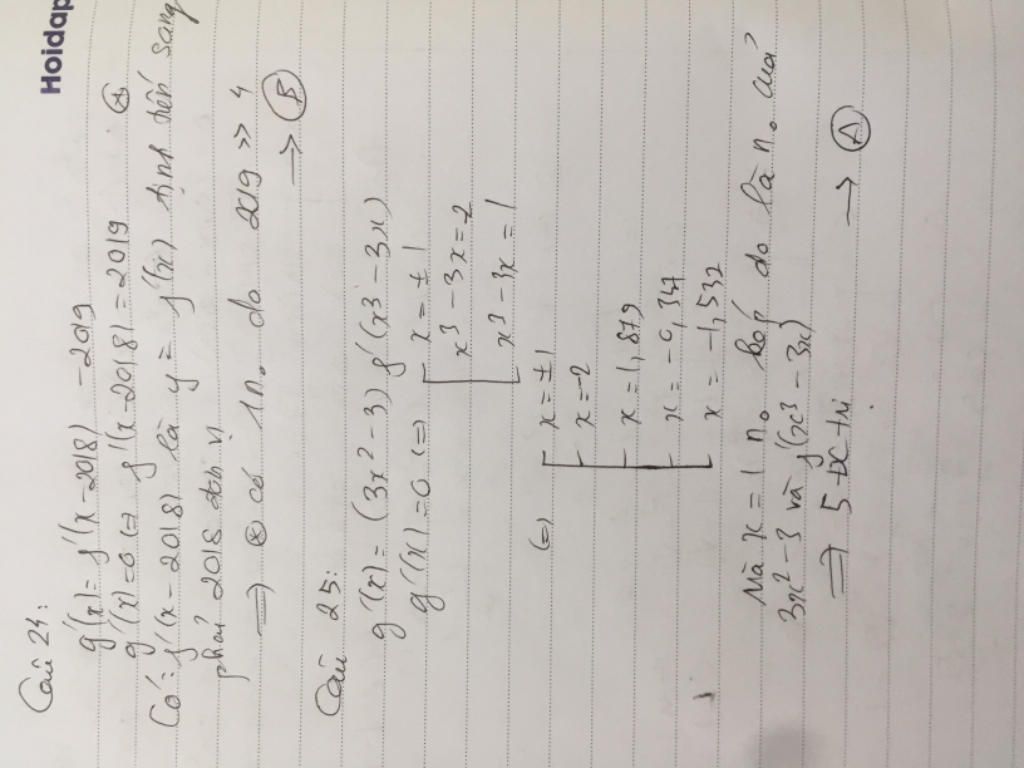 Hoidap
Câu 24:
g'(x) = f'(x-2018) - 2019
g'(x) = 0 (=) f'(x-2018) = 2019 ⊛
Có: f'(x-2018) là y = f'(x) tịnh tiến sang
phải 2018 đơn vị
=> ⊛ có 1 n₀ do 2019 >> 4
→ B
Câu 25:
g'(x) = (3x² - 3) f'(x³ - 3x)
g'(x) = 0 (=) [ x = ±1
x³ - 3x = -2
x³ - 3x = 1
(=) [ x = ±1
x = -2
x = 1,879
x = -0,347
x = -1,532
Mà x = 1 n₀ kép do là n₀ của
3x² - 3 và f'(x³ - 3x)
=> 5 đc trị → A